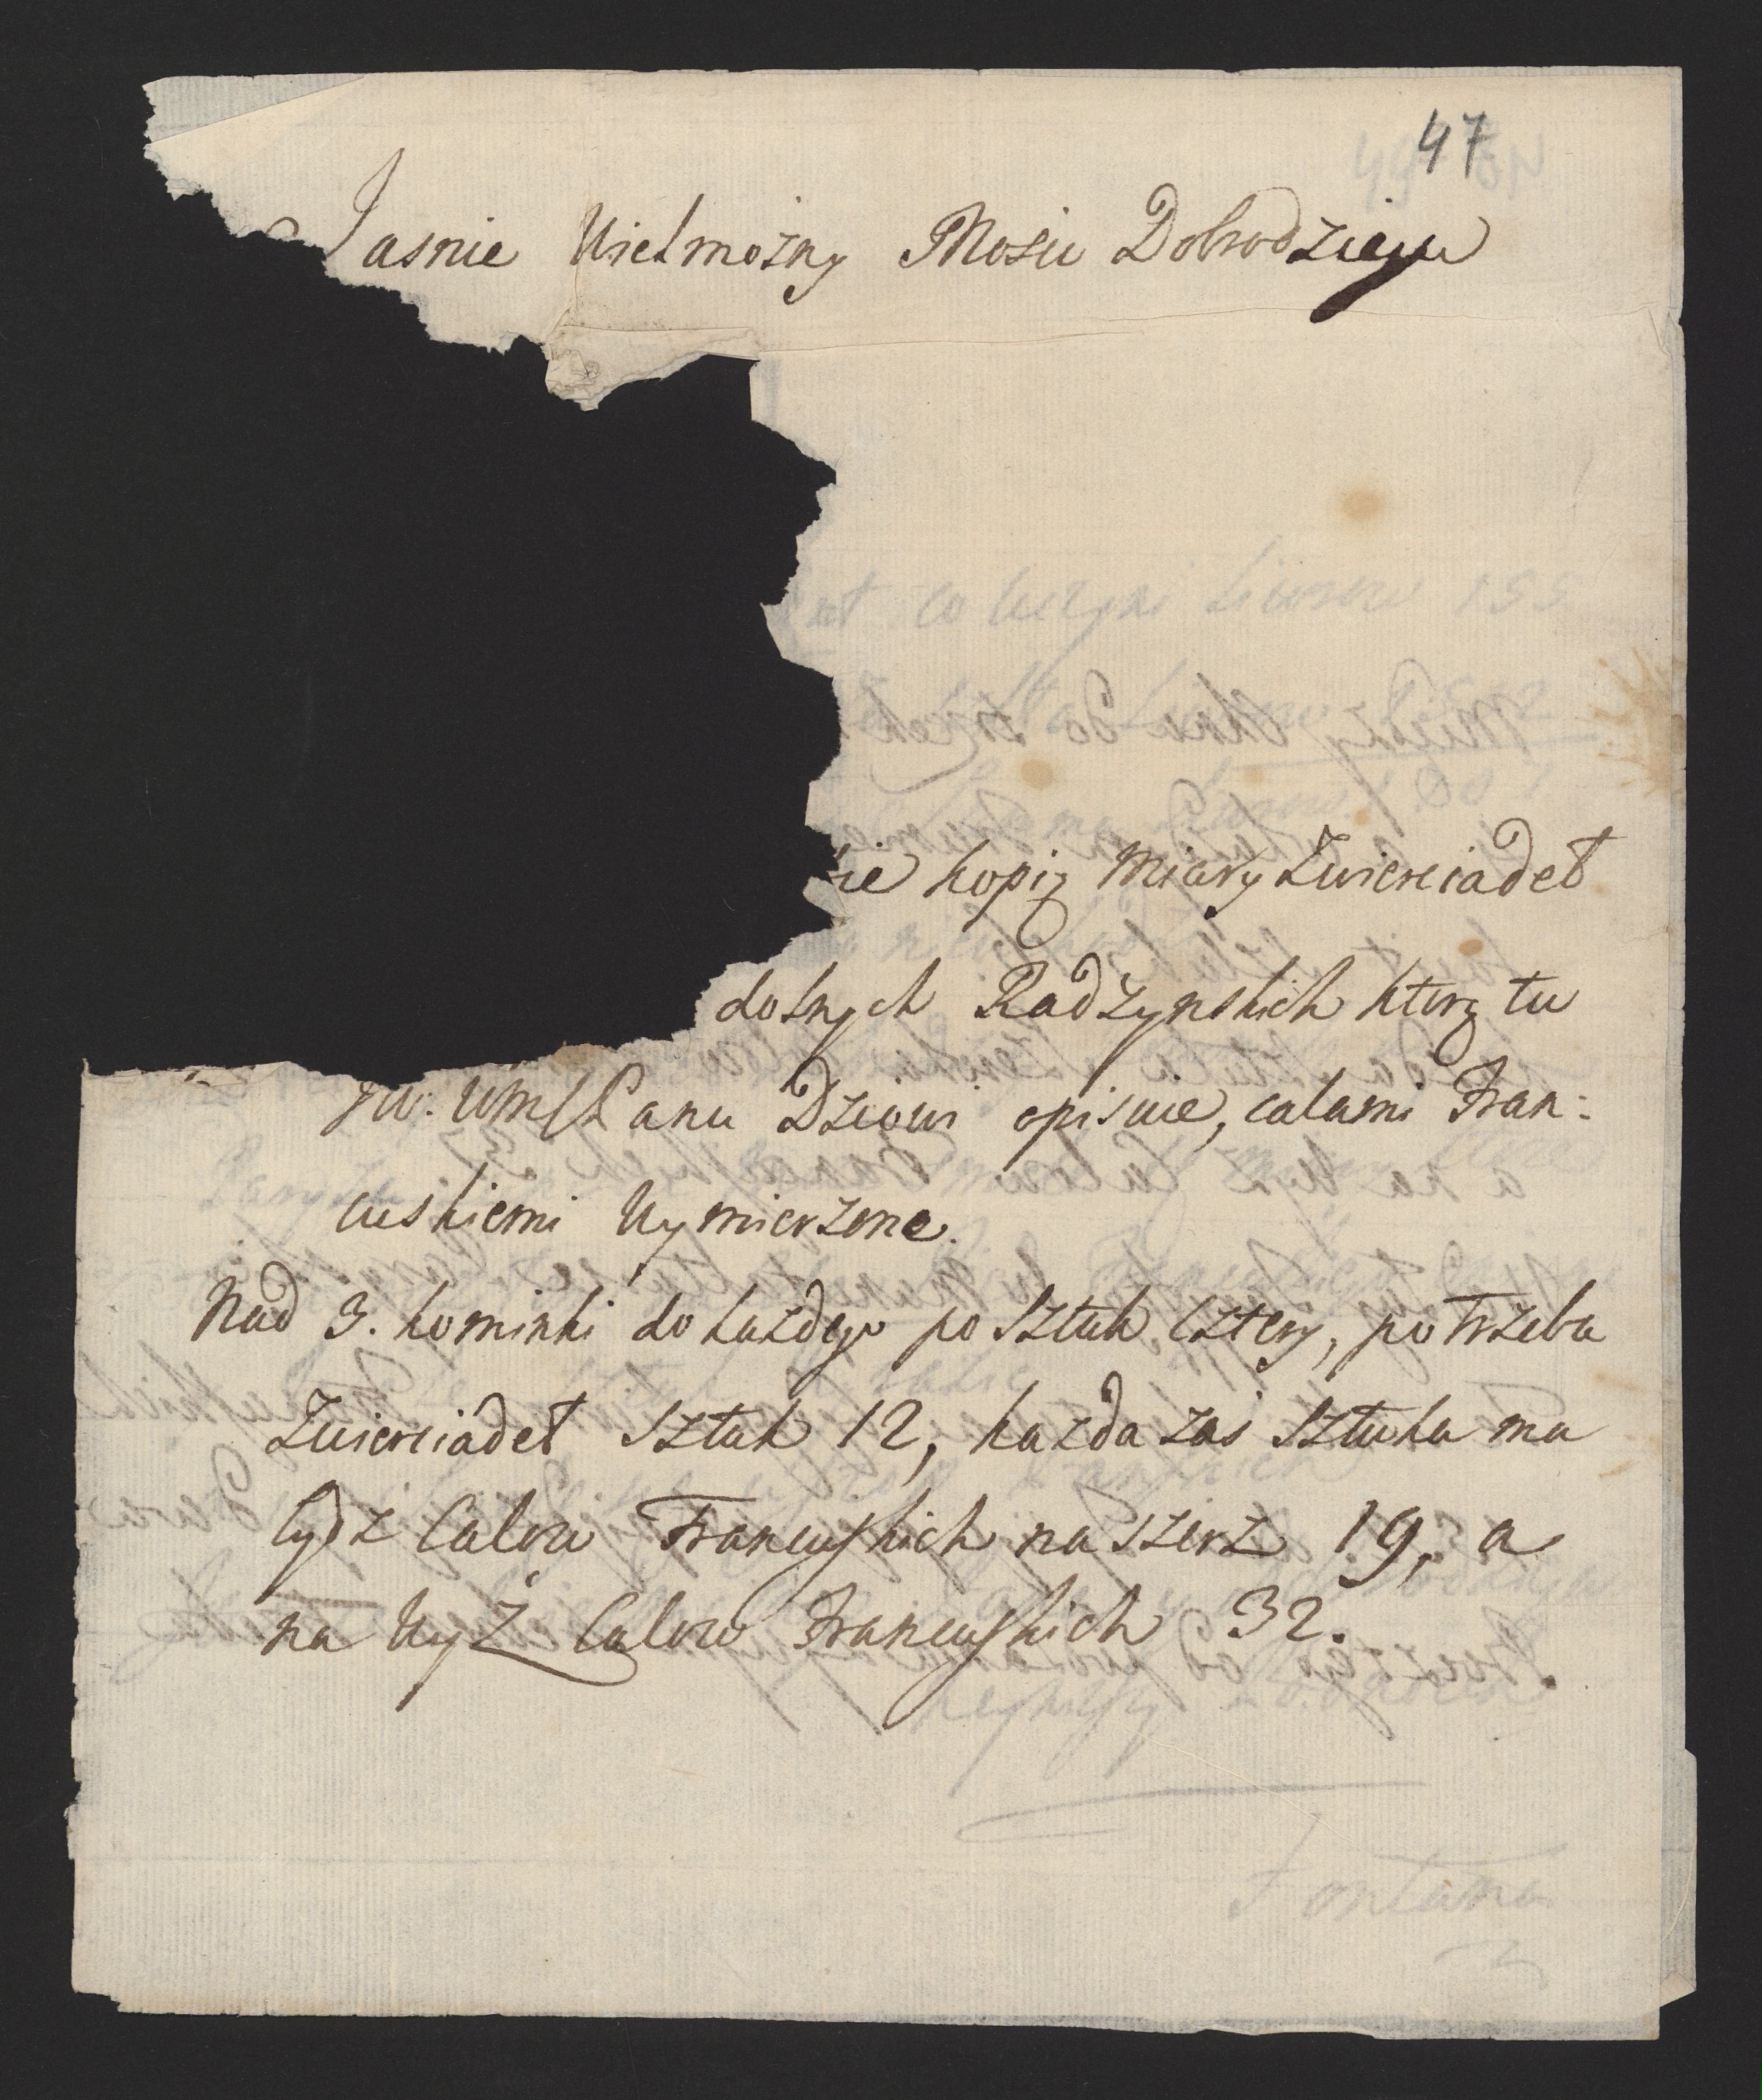 47
Jasnie Wielmożny Mosiu Dobrodzieju
kopią Miary Zwierciadeł
dolnych Radzynskich którą tu
JW: WmśPanu Dziowi opisuie, calami Fran:
cuskiemi Wymierzone.
Nad 3. kominki do każdego po Sztuk Cztery, potrzeba
Zwierciadeł Sztuk 12, każda zaś Sztuka ma
bydź Calow Francuskich na szerz 19, a
na Wyż Calow Francuskich 32.